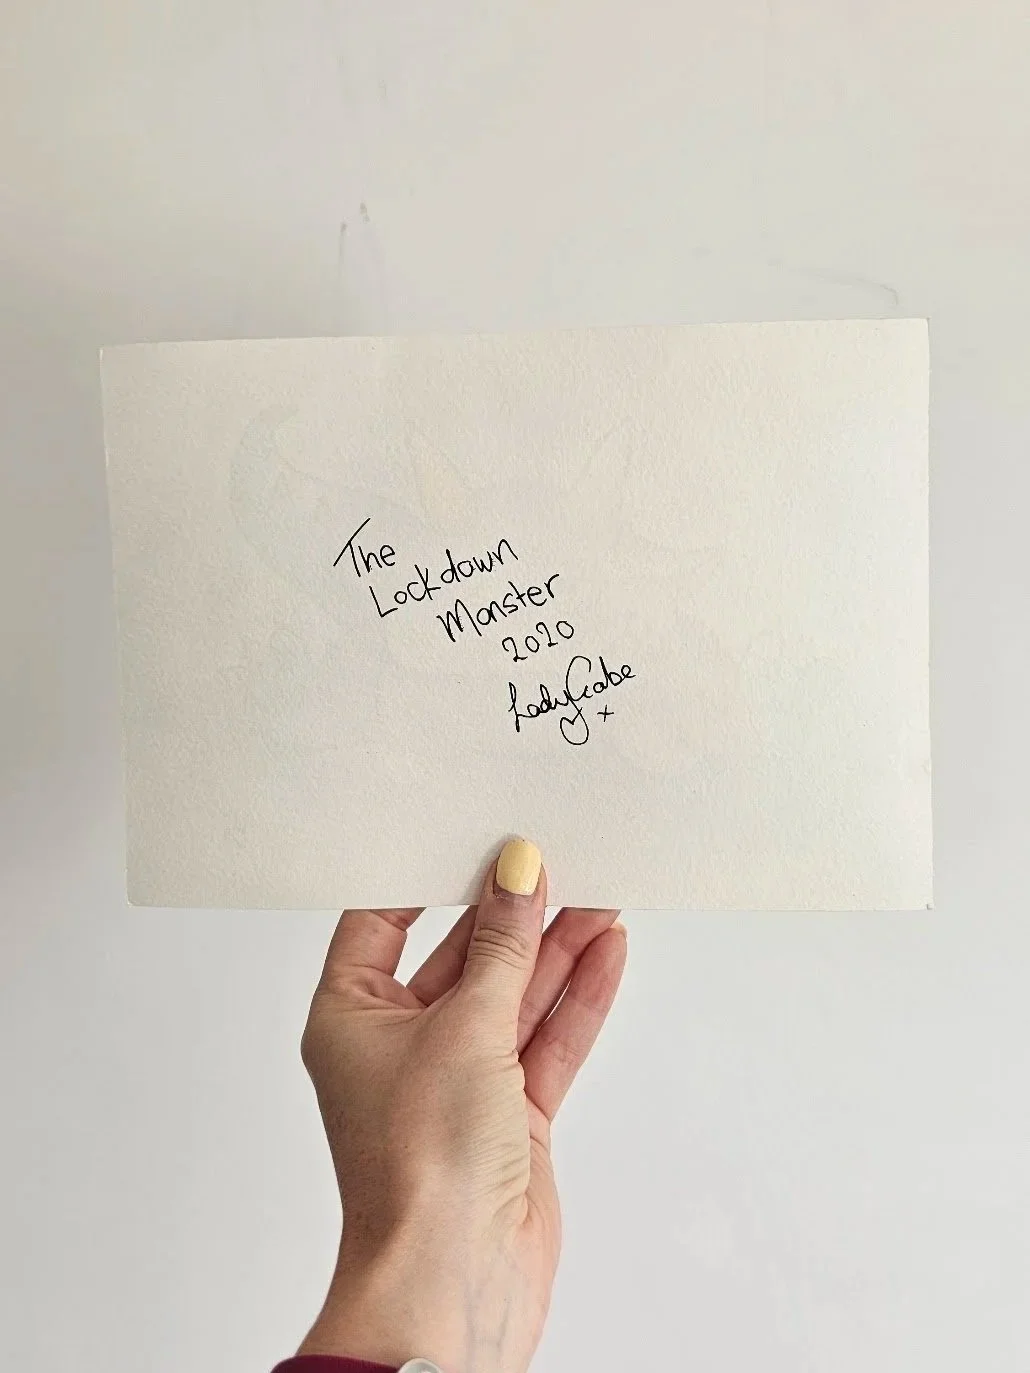 The
Lockdown
Monster
2020
LadyGabe
x